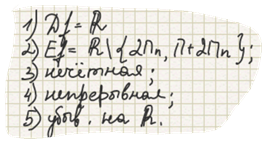 1) Df = R
2) Ef = R \ { 2Пn, П + 2Пn };
3) нечётная;
4) непрерывная;
5) убыв. на R.